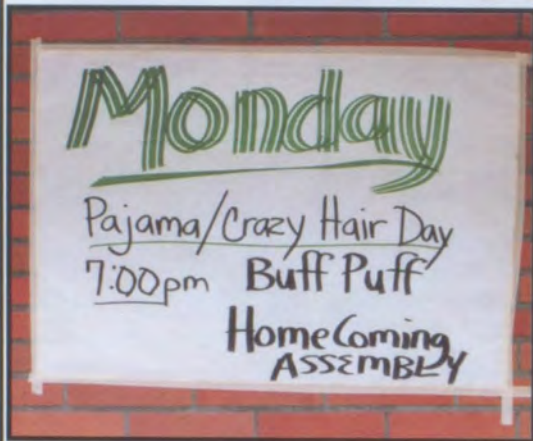 Monday
Pajama/Crazy Hair Day
7:00pm Buff Puff
HomeComing
ASSEMBLY